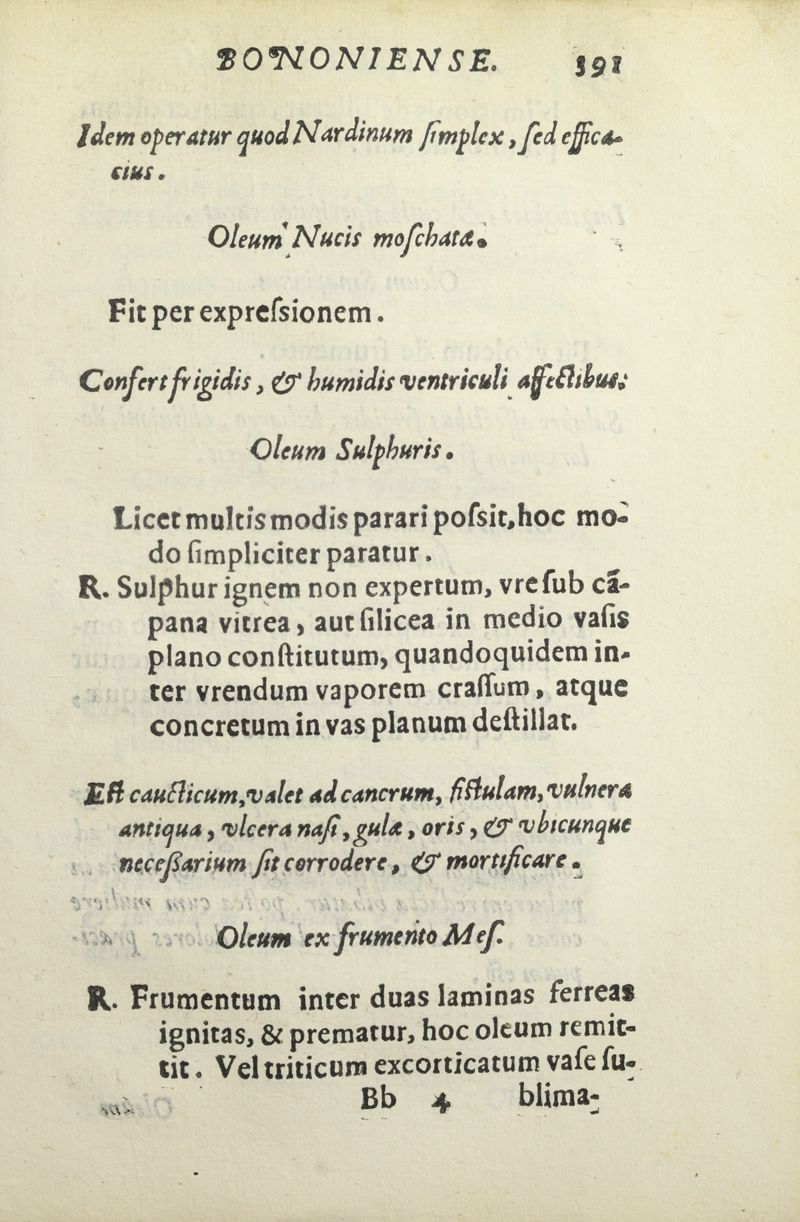 BONONIENSE. 391
Idem operatur quod Nardinum ſimplex, ſed effica-
cius.
Oleum Nucis moſchatæ.
Fit per expreſsionem.
Confert frigidis, & humidis ventriculi affectibus.
Oleum Sulphuris.
Licet multis modis parari poſsit, hoc mo-
do ſimpliciter paratur.
R. Sulphur ignem non expertum, vre ſub cā-
pana vitrea, aut ſilicea in medio vaſis
plano conſtitutum, quandoquidem in-
ter vrendum vaporem craſſum, atque
concretum in vas planum deſtillat.
Eſt cauſticum, valet ad cancrum, fiſtulam, vulnera
antiqua, vlcera naſi, gulæ, oris, & vbicunque
neceſſarium ſit corrodere, & mortificare.
Oleum ex frumento Meſ.
R. Frumentum inter duas laminas ferreas
ignitas, & prematur, hoc oleum remit-
tit. Vel triticum excorticatum vaſe ſu-
Bb 4 blima-